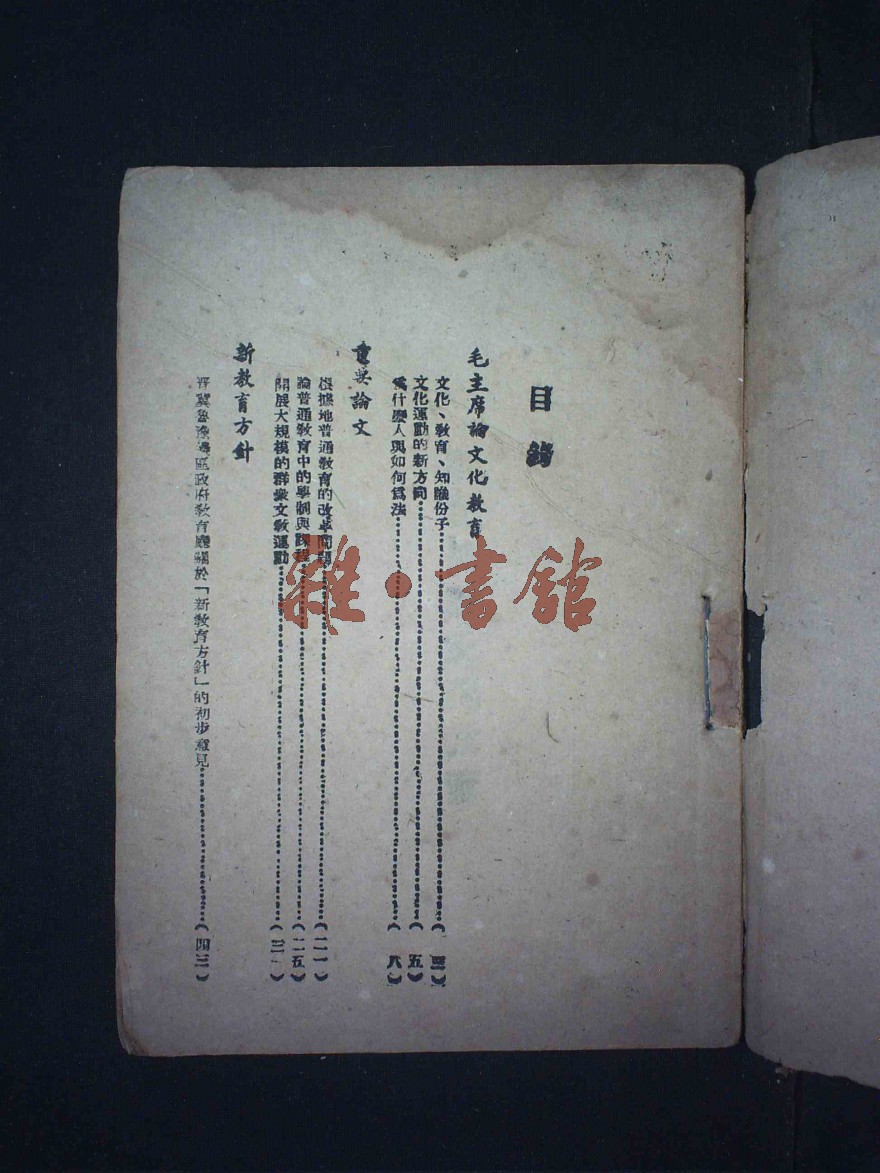 目錄
毛主席論文化教育
文化、教育、知識份子……(四)
文化運動的新方向……(五)
爲什麼人與如何爲法……(八)
重要論文
根據地普通教育的改革問題……(二一)
論普通教育中的學制與課程……(二五)
開展大規模的群衆文教運動……(三一)
新教育方針
晋冀魯豫邊區政府教育廳關於「新教育方針」的初步意見……(四三)
雜·書館